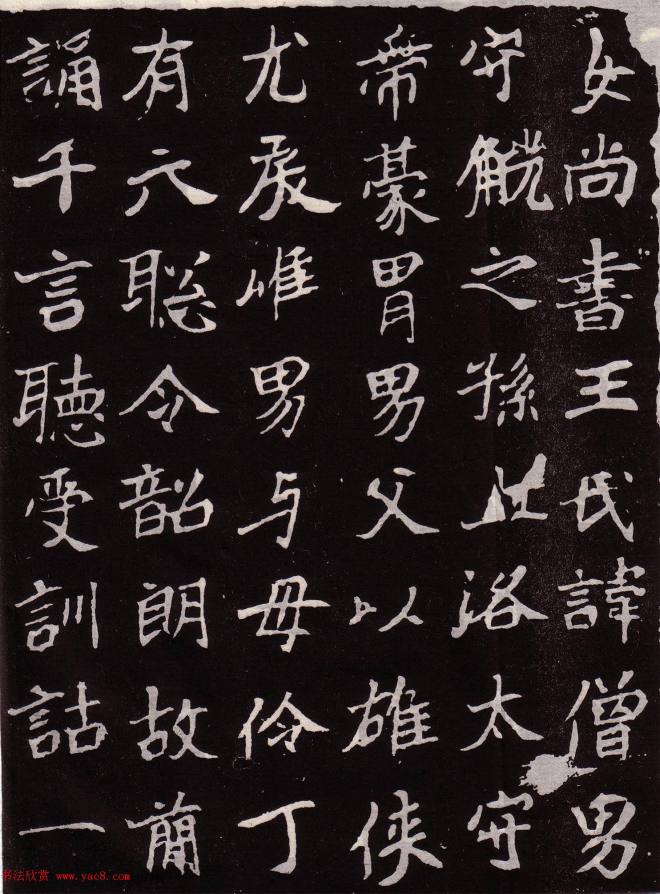 女尚書王氏諱僧男
守之孫洛太守
豪胄男父以雄俠
尤唯男与母伶丁
有六聡令韶朗故簡
誦千言聽受訓詁一
书法欣赏 www.yac8.com